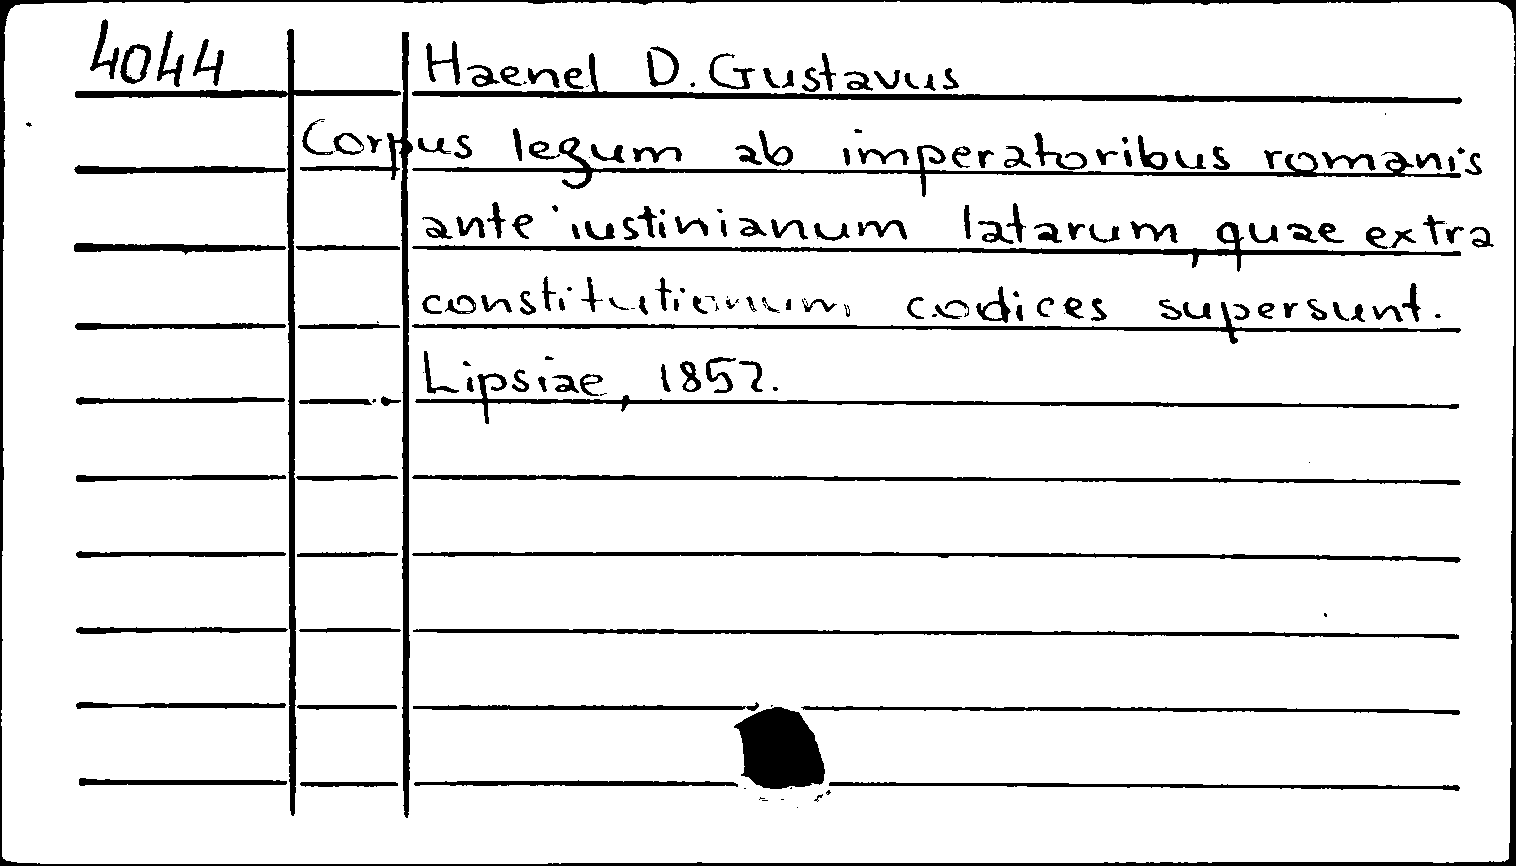 4044 Haenel D. Gustavus
Corpus legum ab imperatoribus romanis
ante iustinianum latarum, quae extra
constitutionum codices supersunt.
Lipsiae, 1857.